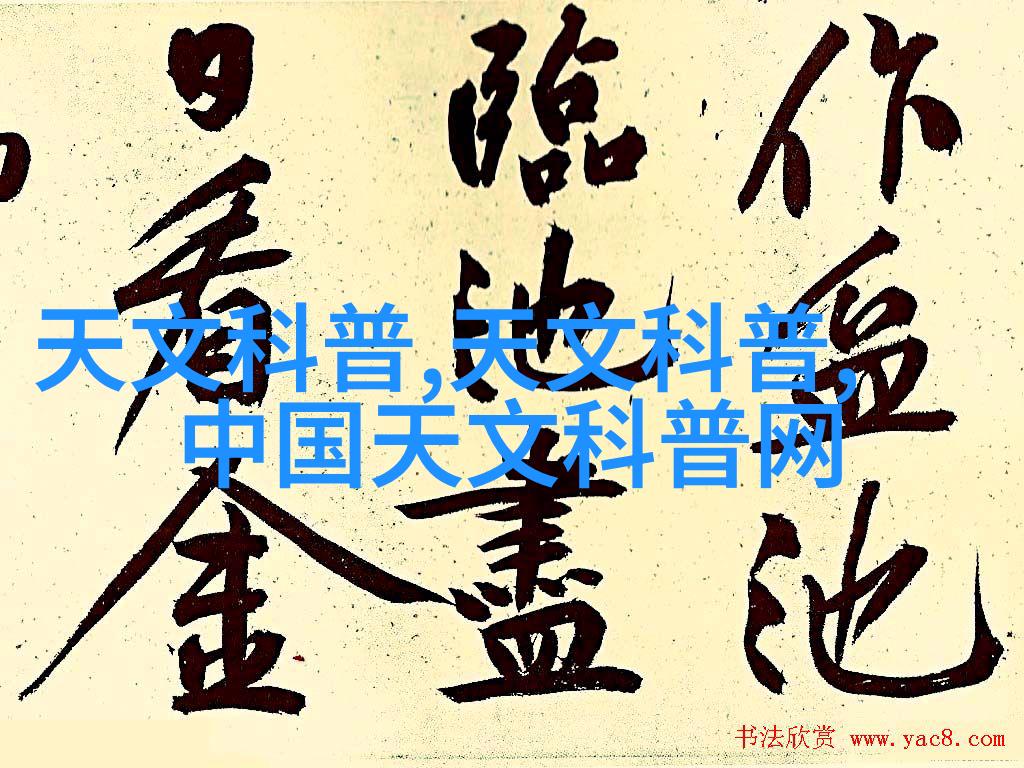 作盆池
臨池盡
日看金
天文科普,天文科普,
中国天文科普网
书法欣赏 www.yac8.com